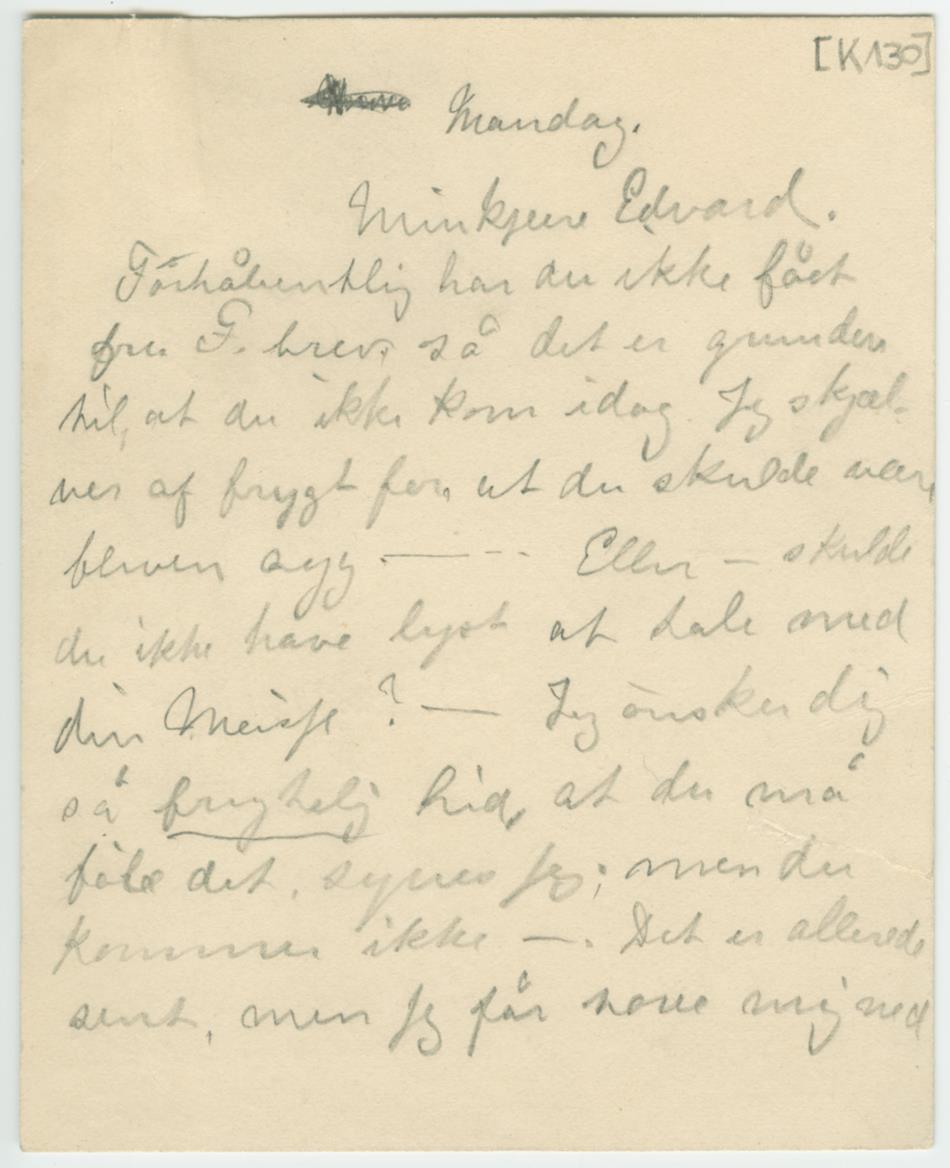 [K130]
Mandag.
Min kjære Edvard.
Forhåbentlig har du ikke fået
fru F. brev, så det er grunden
til, at du ikke kom idag. Jeg skjæl-
ver af frygt for, at du skulde være
bleven syg. — - - Eller — skulde
du ikke have lyst at tale med
din Meisje? — Jeg ønsker dig
så frygtelig hid, at du må
føle det, synes jeg; men du
kommer ikke —. Det er allerede
sent, men jeg får have mig ned